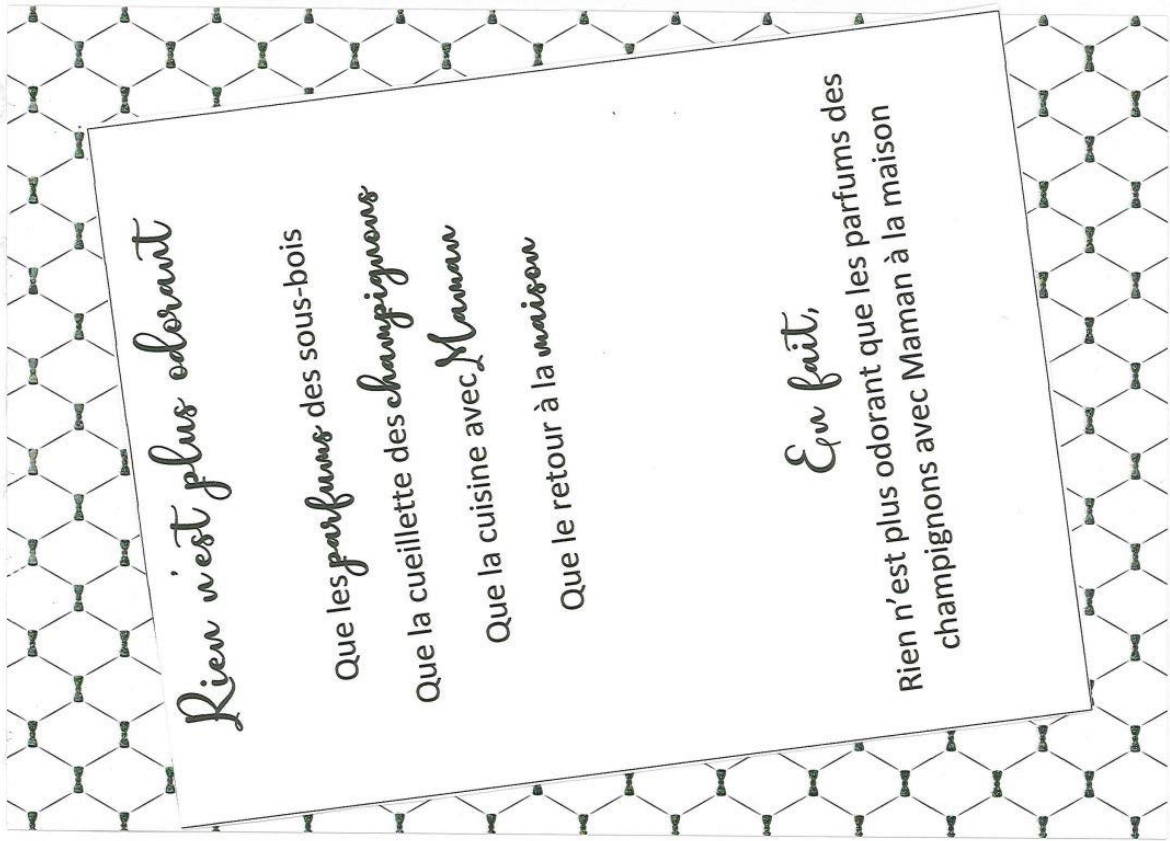 Rien n'est plus odorant
Que les parfums des sous-bois
Que la cueillette des champignons
Que la cuisine avec Maman
Que le retour à la maison
En fait,
Rien n'est plus odorant que les parfums des
champignons avec Maman à la maison